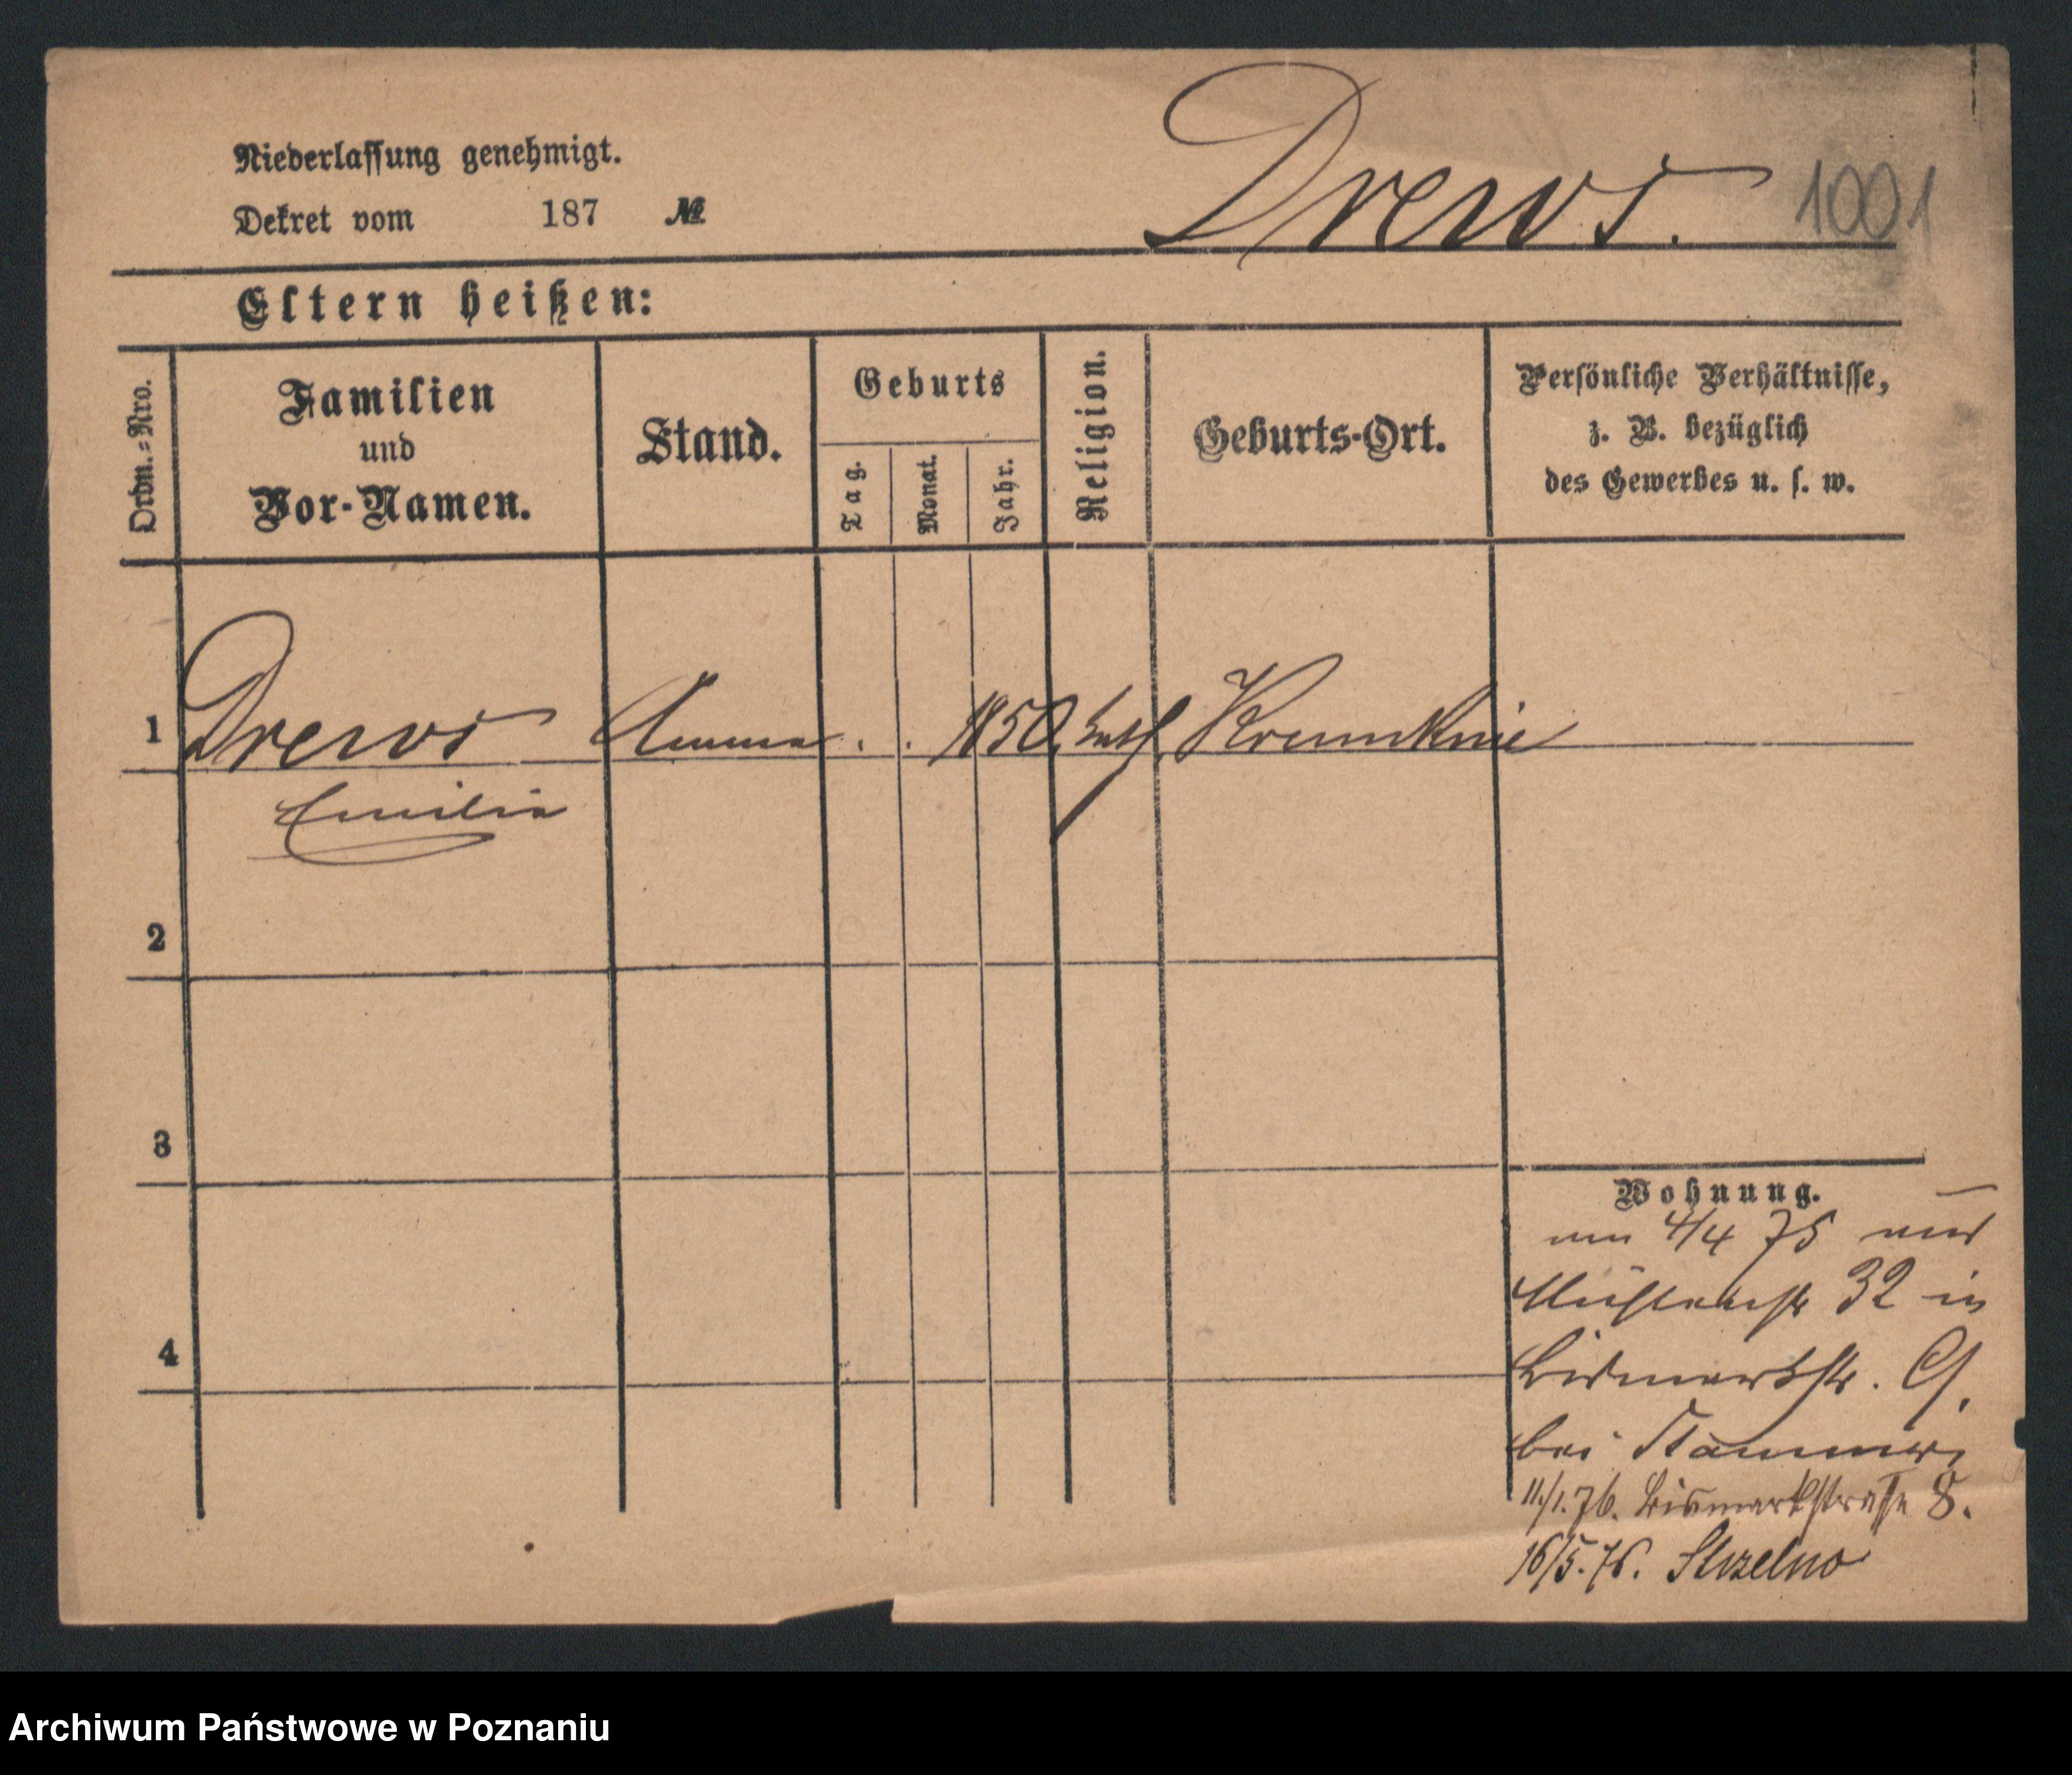 Niederlassung genehmigt.
Drews. 1001
Dekret vom 187 №
Eltern heißen:
Ordn.=Nro.
Familien
und
Vor-Namen.
Stand.
Geburts
Tag.
Monat.
Jahr.
Religion.
Geburts-Ort.
Persönliche Verhältnisse,
z. B. bezüglich
des Gewerbes u. s. w.
1 Drews Amme . . 1850 kath. Krumknie
Emilie
2
3
4
Wohnung.
4/4 75 aus
Mühlenstr 32 in
Bismarkstr. 9.
bei
11./1. 76. Bismarkstraße 8.
16/5. 76. Strzelno
Archiwum Państwowe w Poznaniu